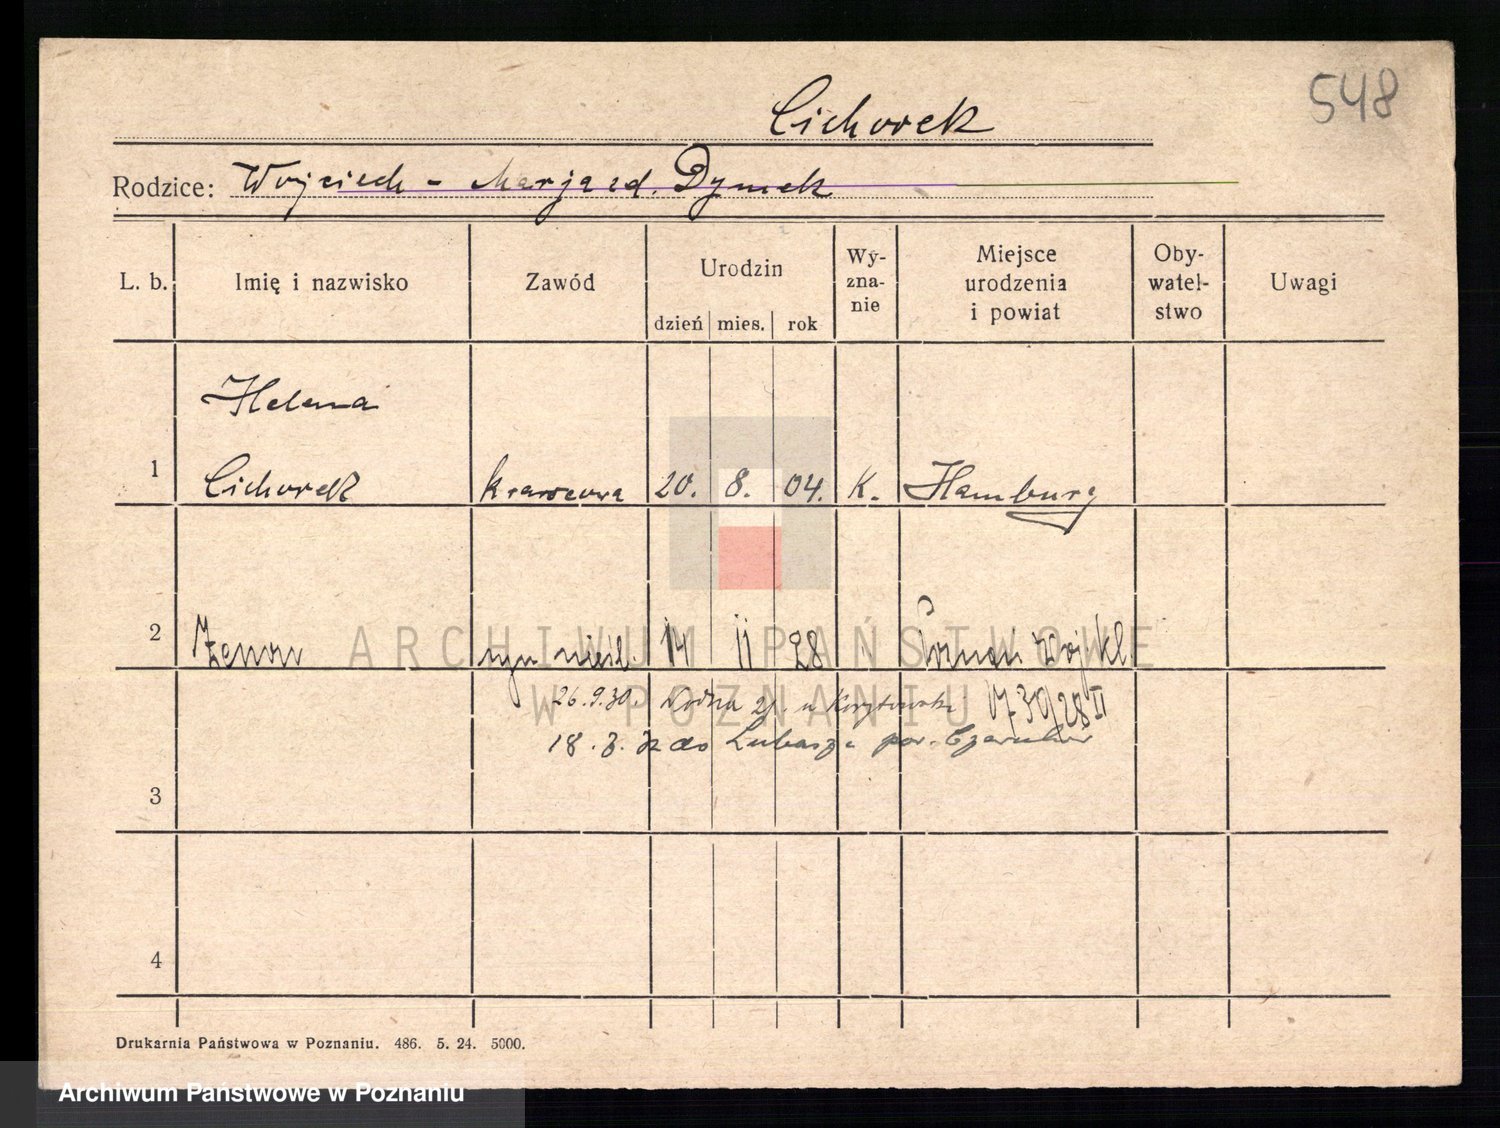 548
Cichorek
Rodzice: Wojciech - Marja zd. Dymek
L. b. Imię i nazwisko Zawód Urodzin Wy-zna-nie Miejsce urodzenia i powiat Oby-watel-stwo Uwagi
dzień mies. rok
Helena
1 Cichorek krawcowa 20. 8. 04. K. Hamburg
2 Zenon syn nieśl. 14 11 28 Poznań Wojkl.
ARCHIWUM PAŃSTWOWE
W POZNANIU
26.9.30. Wodna 21. u
18. 3. 32 do Lubasza pow. Czarnków
3
4
Drukarnia Państwowa w Poznaniu. 486. 5. 24. 5000.
Archiwum Państwowe w Poznaniu